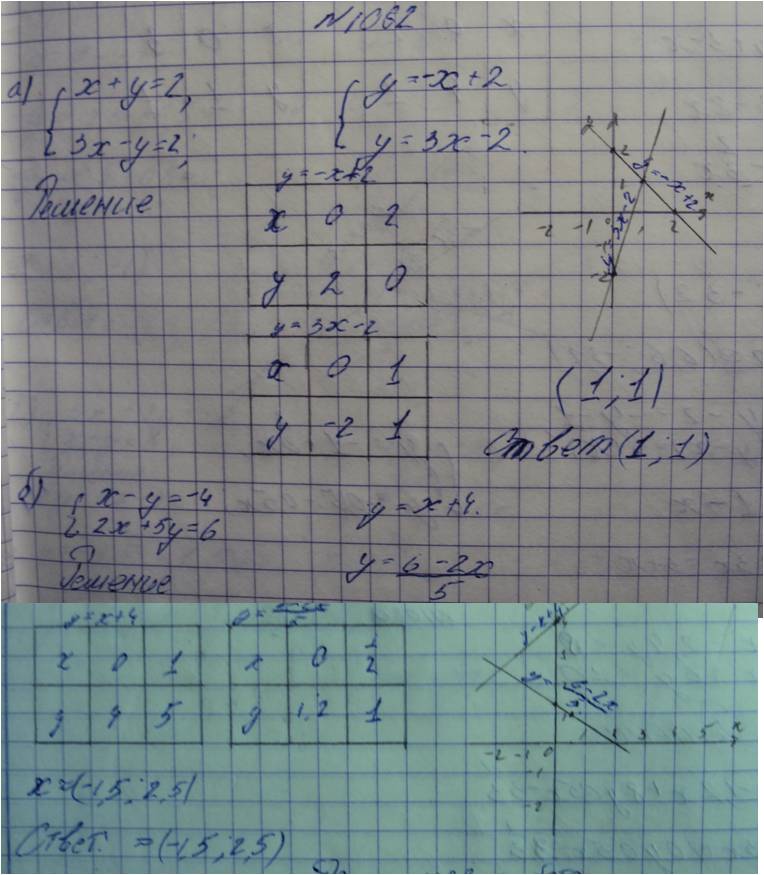 №1062
а) { x + y = 2,
3x - y = 2;
{ y = -x + 2
y = 3x - 2.
Решение
y = -x + 2
x 0 2
y 2 0
y = 3x - 2
x 0 1
y -2 1
y
x
2
y = -x + 2
y = 3x - 2
-2 -1 2
-2
(1; 1)
Ответ (1; 1)
б) { x - y = -4
2x + 5y = 6
y = x + 4.
y = 6 - 2x
5
Решение
y = x + 4
x 0 1
y 4 5
x 0 1/2
y 1,2 1
y = x + 4
6 - 2x
5
-2 -1 0 3 4 5 x
-1
-2
x = (-1,5; 2,5)
Ответ. = (-1,5; 2,5)